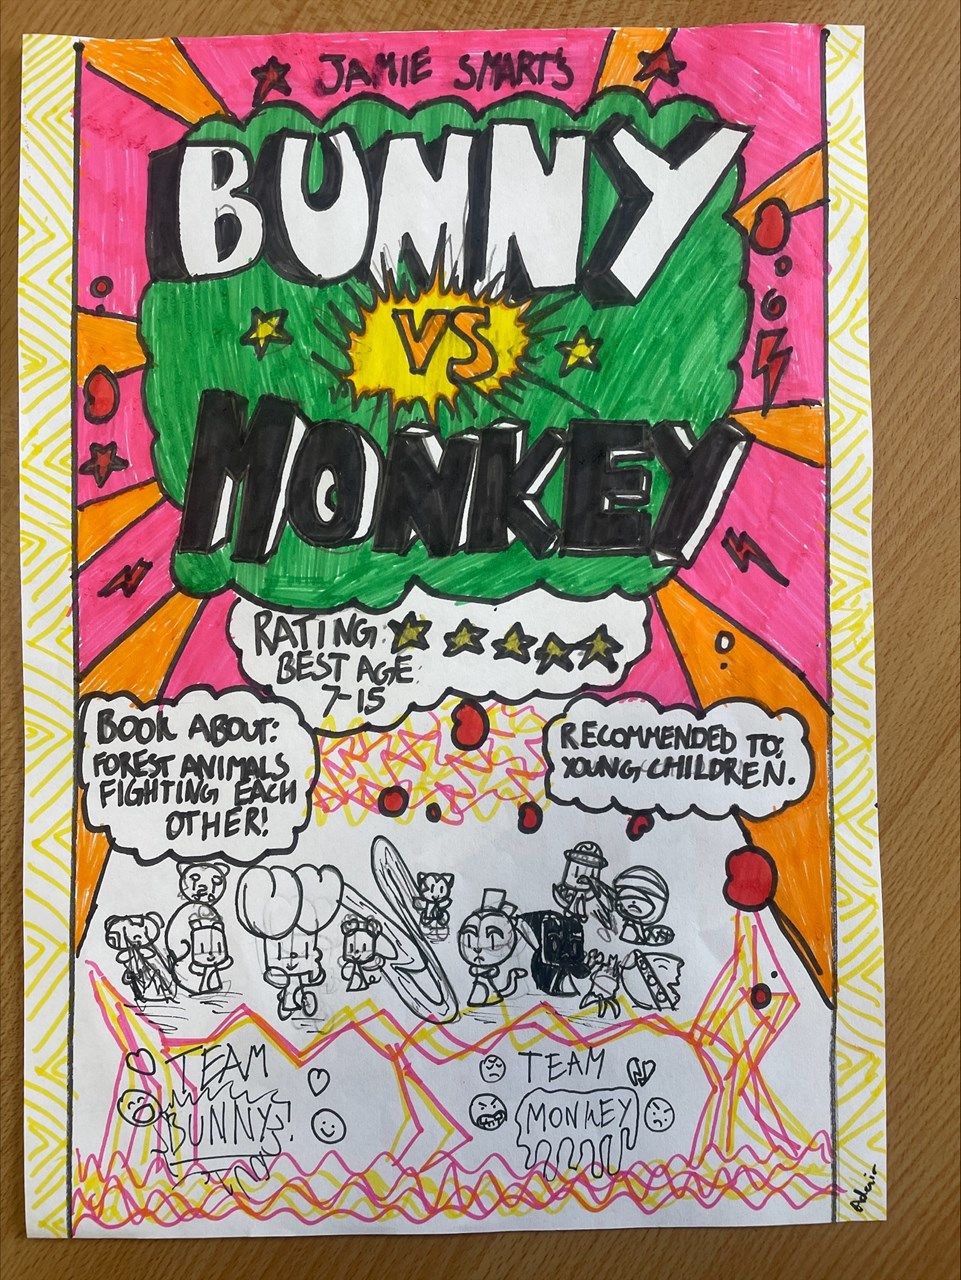 JAMIE SMART'S
BUNNY
VS
MONKEY
RATING:
BEST AGE:
7-15
BOOK ABOUT:
FOREST ANIMALS
FIGHTING EACH
OTHER!
RECOMMENDED TO:
YOUNG CHILDREN.
TEAM
BUNNY!
TEAM
MONKEY